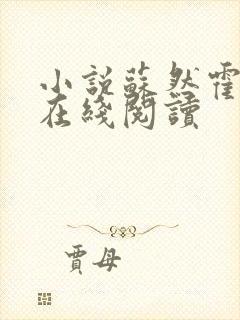 小說蘇然霍
在綫閱讀
賈母